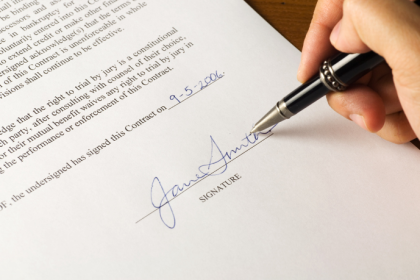 be binding
in bankruptcy for
voluntarily entered into this C
to extend credit or make other fina
undersigned acknowledge(s) that the terms
of this Contract is unenforceable in whole
visions shall continue to be effective.
dge that the right to trial by jury is a constitutional
ch party, after consulting with counsel of their choice,
or their mutual benefit waives any right to trial by jury in
g the performance or enforcement of this Contract.
OF, the undersigned has signed this Contract on 9-5-2006.
Jane Smith
SIGNATURE